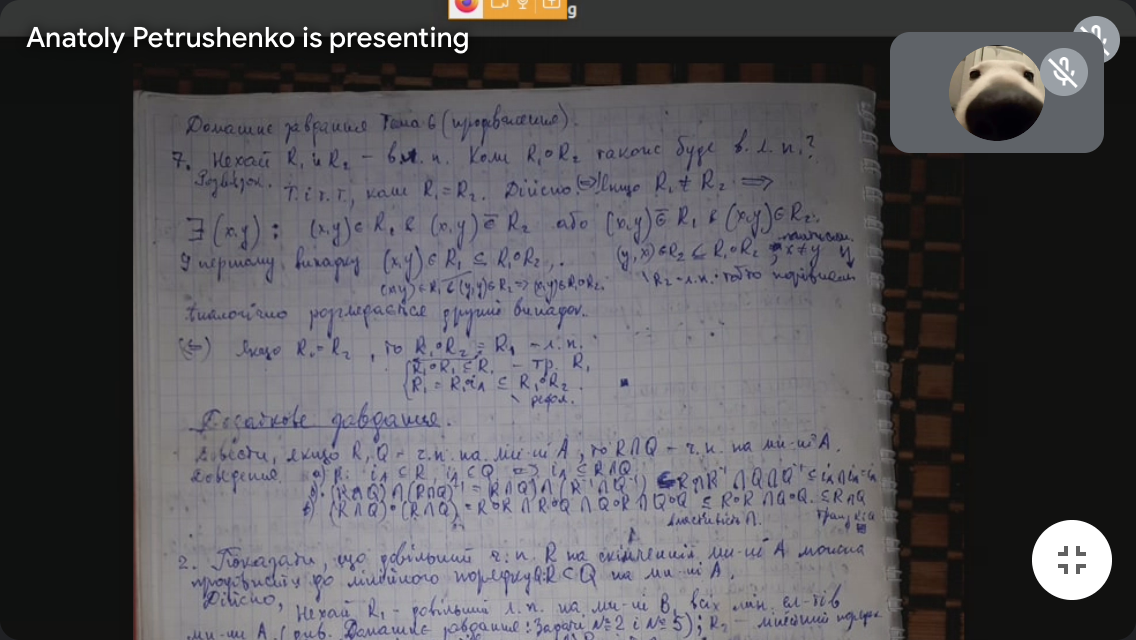 g
Anatoly Petrushenko is presenting
Домашнє завдання Тема 6 (продовження).
7. Нехай R₁ і R₂ – л. п. Коли R₁∘R₂ також буде л. п.?
Розвязок. Т. і т. т., коли R₁ = R₂. Дійсно. (⇒) Якщо R₁ ≠ R₂ ⟹
∃(x,y): (x,y) ∈ R₁ & (x,y) ∈̄ R₂ або (x,y) ∈̄ R₁ & (x,y) ∈ R₂.
У першому випадку (x,y) ∈ R₁ ⊆ R₁∘R₂, (y,x) ∈ R₂ ⊆ R₁∘R₂ x ≠ y
(x,y) ∈ R₁ & (y,y) ∈ R₂ => (x,y) ∈ R₁∘R₂. R₂ – л.п. тобто
Аналогічно розглядається другий випадок.
(⇐) Якщо R₁ = R₂, то R₁∘R₂ = R₁ – л.п.
R₁∘R₁ ⊆ R₁ – тр. R₁
R₁ = R₁∘i_A ⊆ R₁∘R₂
рефл.
Додаткове завдання.
Довести, якщо R, Q – ч.п. на мн-ні A, то R∩Q – ч.п. на мн-ні A.
Доведення. а) R: i_A ⊂ R, i_A ⊂ Q => i_A ⊆ R∩Q
(R∩Q) ∩ (R∩Q)⁻¹ = (R∩Q) ∩ (R⁻¹∩Q⁻¹) = R∩R⁻¹ ∩ Q∩Q⁻¹ ⊆ i_A ∩ i_A = i_A
(R∩Q)∘(R∩Q) = R∘R ∩ R∘Q ∩ Q∘R ∩ Q∘Q ⊆ R∘R ∩ Q∘Q ⊆ R∩Q
властивість ∩.
2. Показати, що довільний ч.п. R на скінченній мн-ні A можна
продовжити до лінійного порядку Q: R ⊂ Q на мн-ні A.
Дійсно, Нехай R₁ – довільний л.п. на мн-ні B, всіх мін. ел-тів
мн-ни A, (див. Домашнє завдання: Задачі №2 і №5); R₂ – лінійний